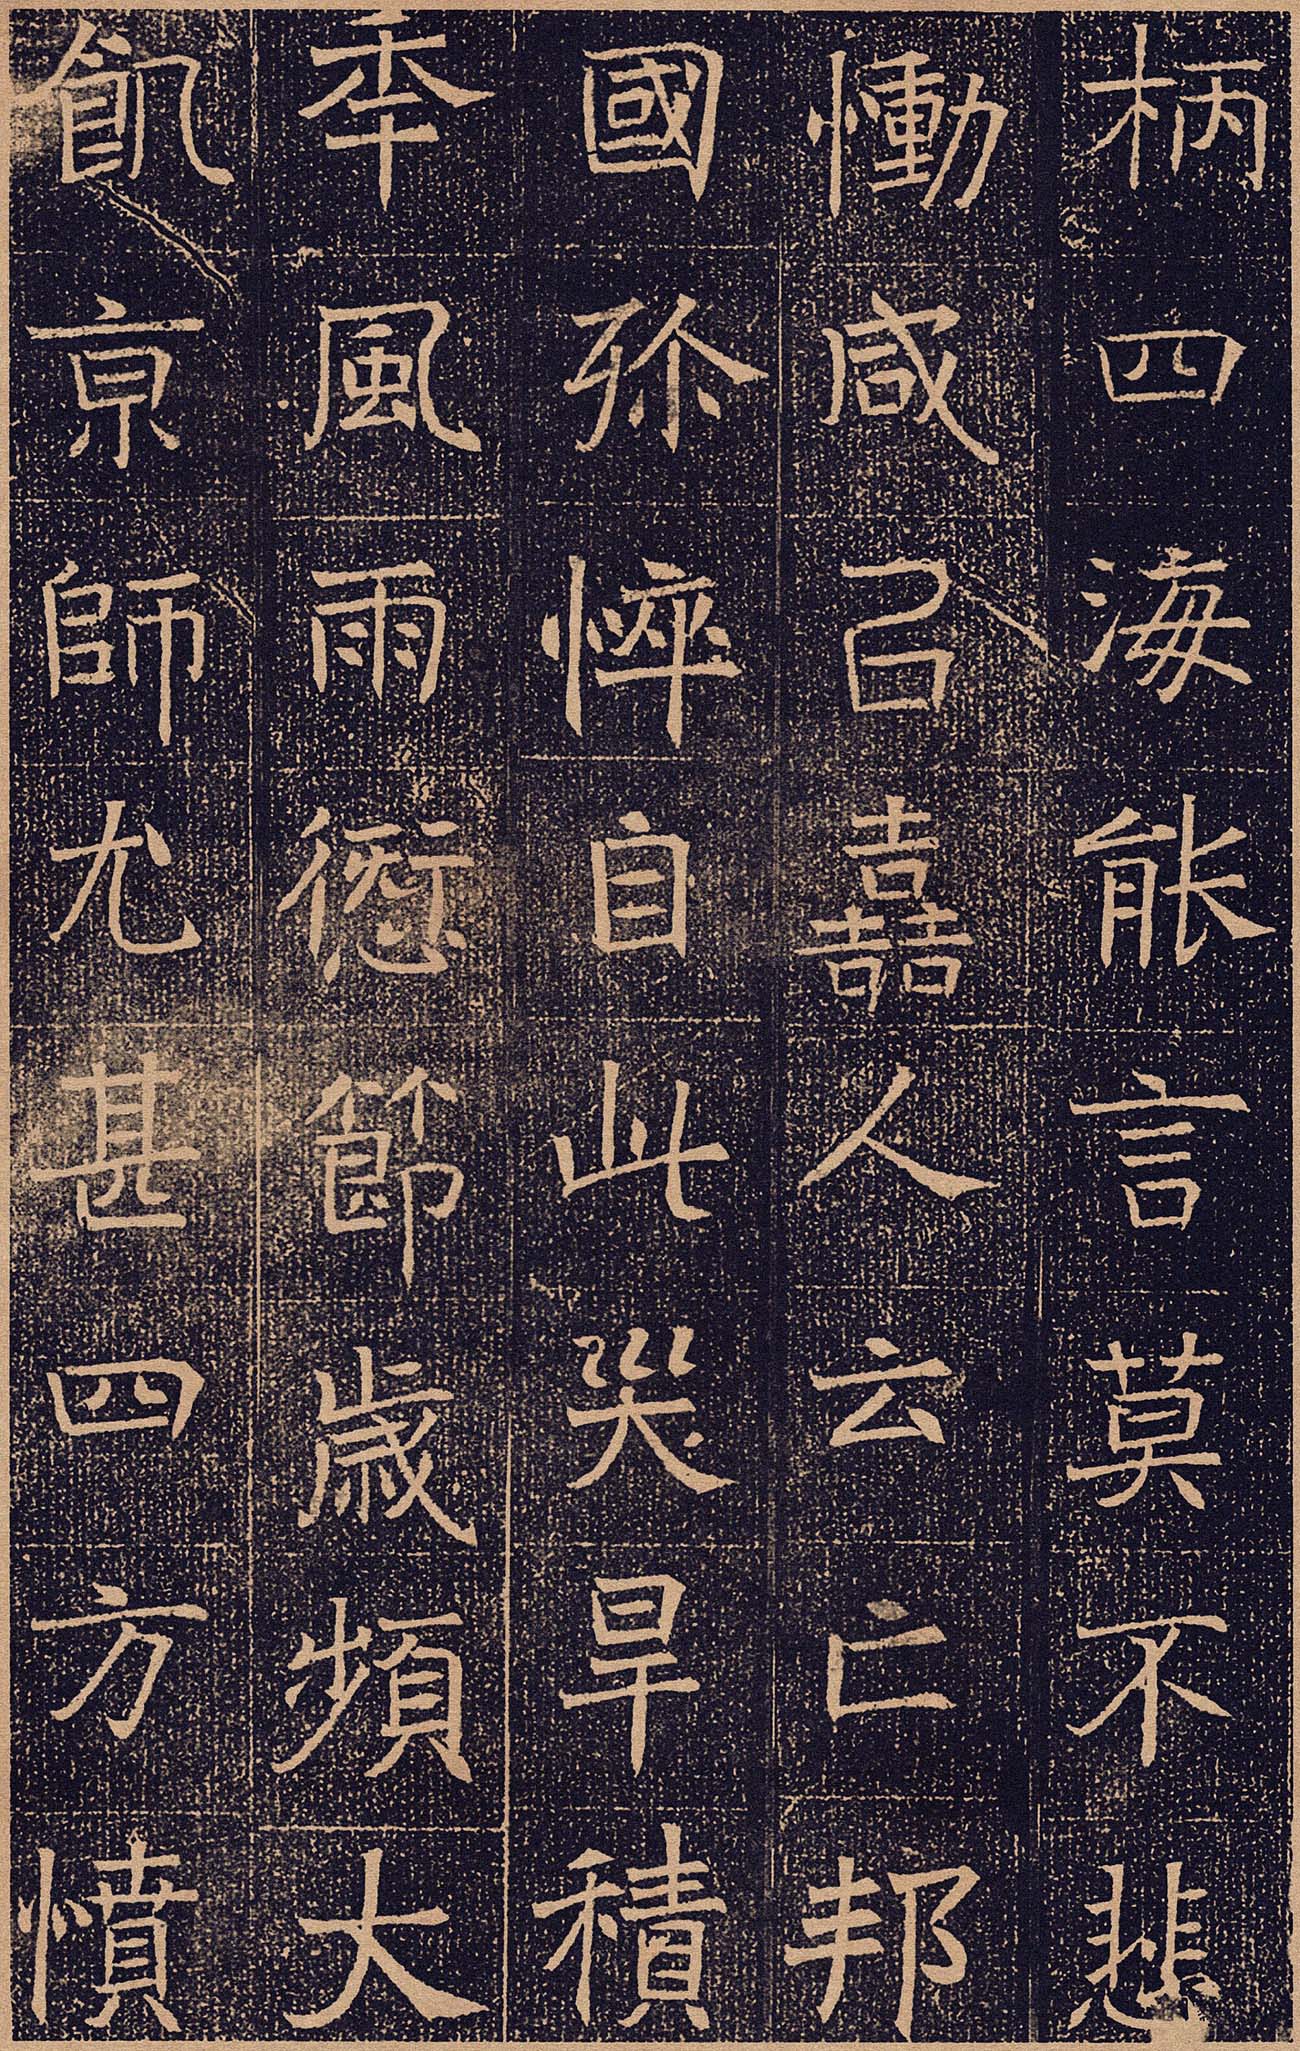 柄四海能言莫不悲
慟咸㠯嚞人云亡邦
國殄悴自此哭旱積
秊風雨愆節歲頻大
飢亰師尤甚四方憤